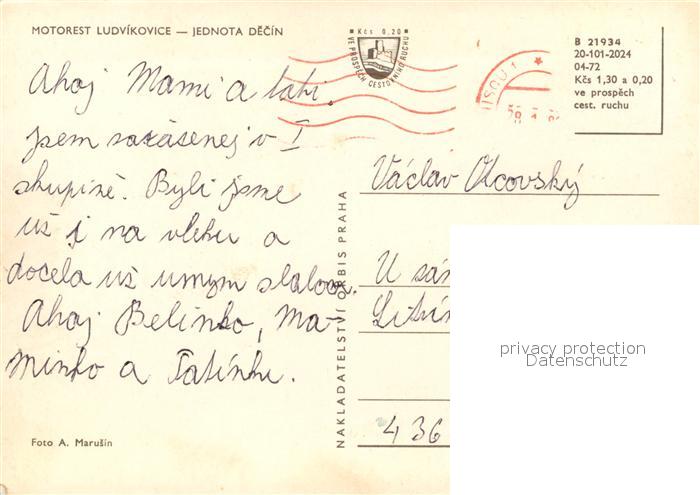 MOTOREST LUDVÍKOVICE — JEDNOTA DĚČÍN
Kčs 0,20
VE PROSPĚCH CESTOVNÍHO RUCHU
B 21934
20-101-2024
04-72
Kčs 1,30 a 0,20
ve prospěch
cest. ruchu
Ahoj Mami a tati.
Jsem zařásenej v I
skupině. Byli jsme
už i na vleku a
docela už umym slalom.
Ahoj Belinko, Ma-
minko a Tatínku.
Foto A. Marušín
NAKLADATELSTVÍ ORBIS PRAHA
Václav Olcovský
U
436
privacy protection
Datenschutz